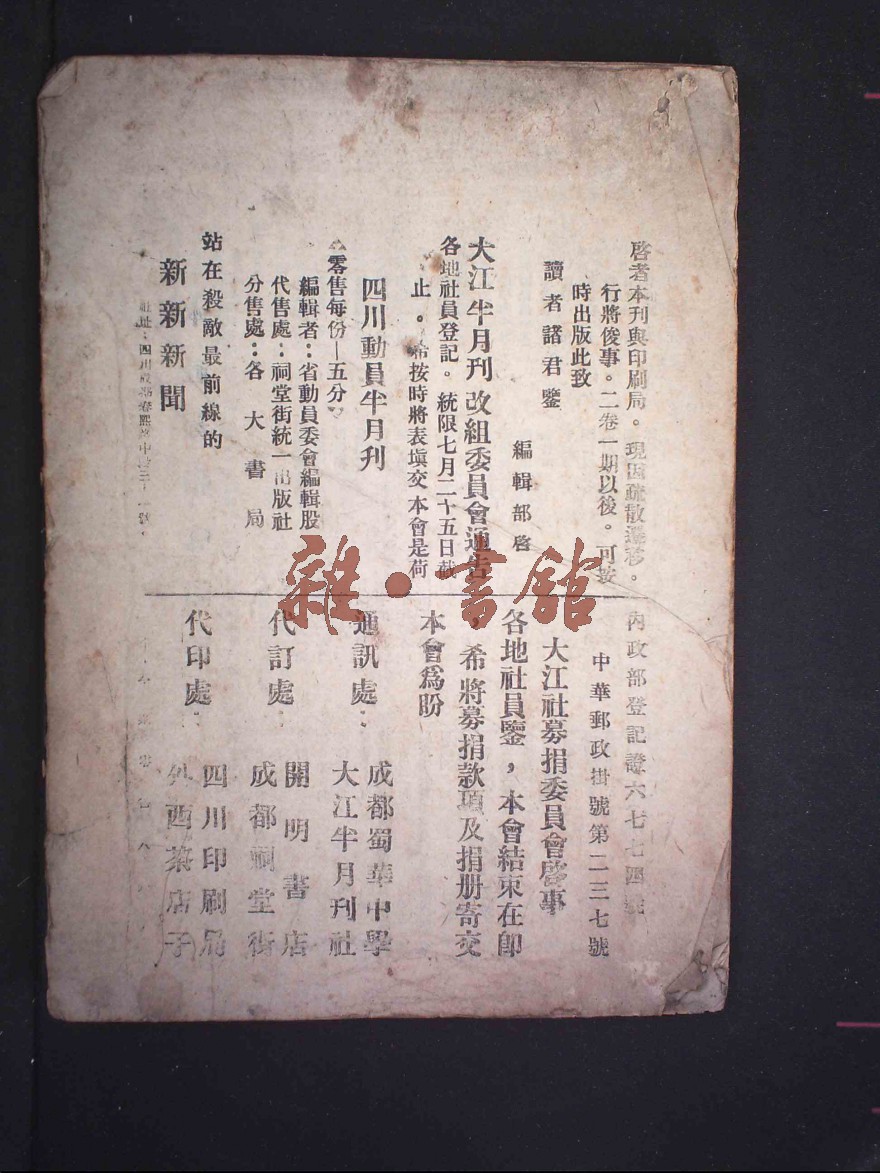 啓者本刊與印刷局。現因疏散遷移。
行將俊事。二卷一期以後。可按
時出版此致
讀者諸君鑒
編輯部啓
大江半月刊改組委員會通告
各地社員登記。統限七月二十五日截
止。希按時將表塡交本會是荷
四川動員半月刊
零售每份—五分
編輯者：省動員委會編輯股
代售處：祠堂街統一出版社
分售處：各大書局
站在殺敵最前線的
新新新聞
社址：四川成都春熙路中
內政部登記證六七七四號
中華郵政掛號第二三七號
大江社募捐委員會啓事
各地社員鑒，本會結束在卽
，希將募捐款項及捐册寄交
本會爲盼
通訊處：
成都蜀華中學
大江半月刊社
代訂處：
開明書店
成都祠堂街
代印處：
四川印刷局
外西藥店子
雜·書館